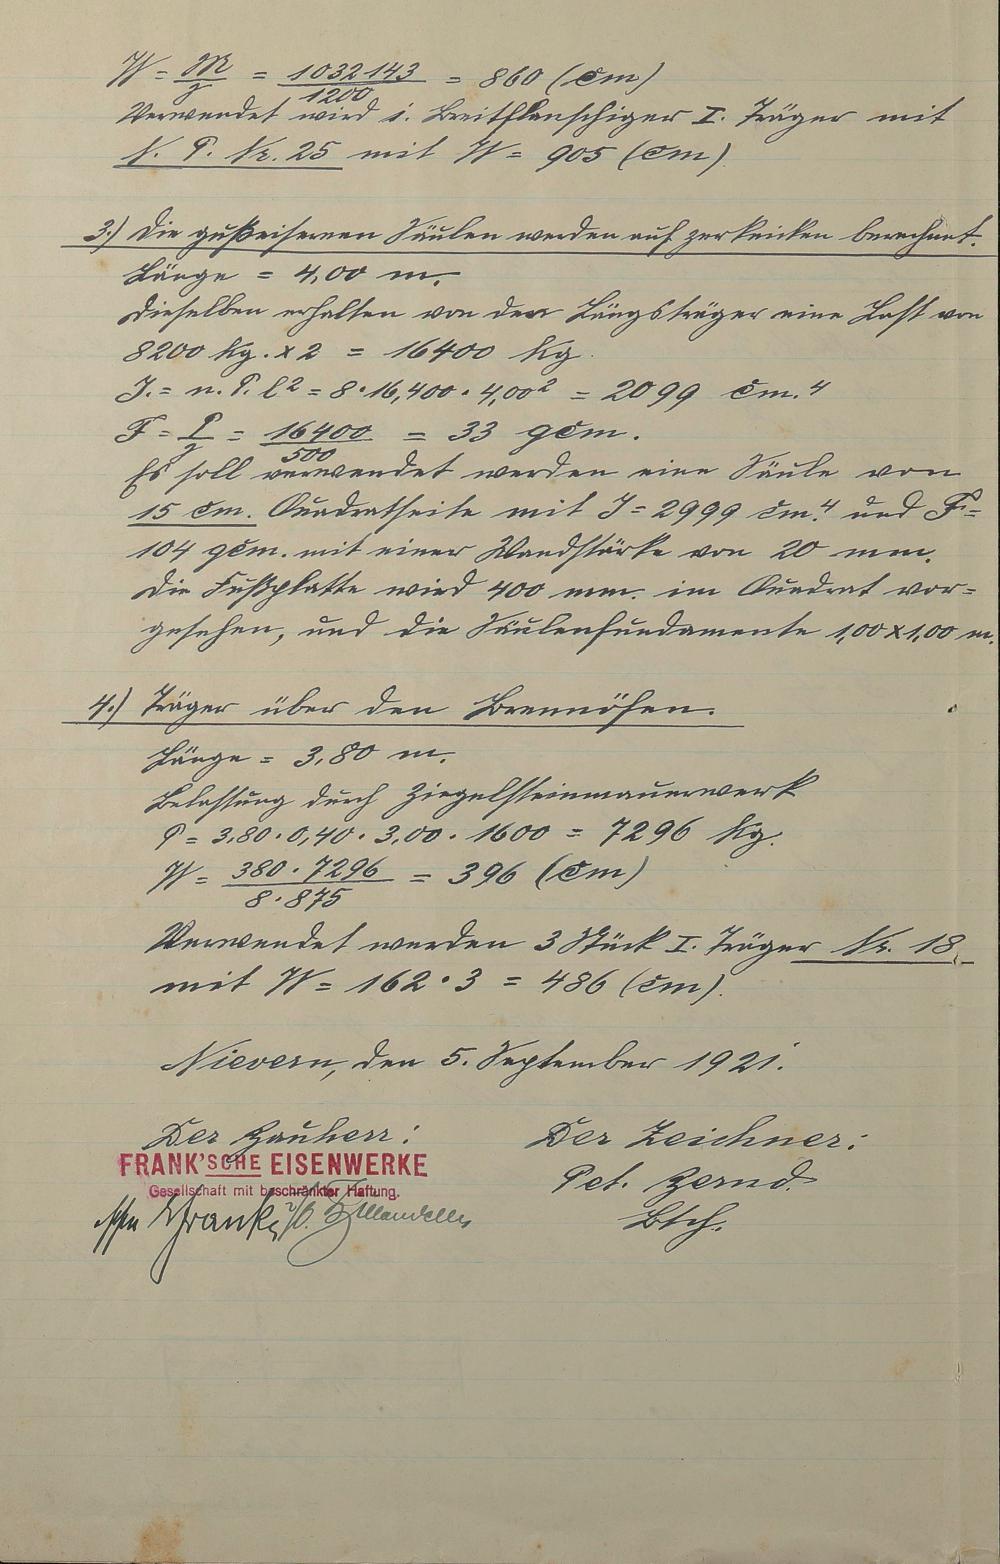 W = M/z = 1032143/1200 = 860 (cm)
Verwendet wird 1. Breitflanschiger I. Träger mit
N. P. Nr. 25 mit W = 905 (cm)
3.) Die gußeisernen Säulen werden auf zerknicken berechnet.
Länge = 4,00 m.
Dieselben erhalten von der Längsträger eine Last von
8200 kg. x 2 = 16400 kg
J. = n. P. l² = 8 · 16,400 · 4,00² = 2099 cm.4
F = P/z = 16400/500 = 33 qcm.
Es soll verwendet werden eine Säule von
15 cm. Quadratseite mit J = 2999 cm.4 und F =
104 qcm. mit einer Wandstärke von 20 mm.
Die Fußplatte wird 400 mm. im Quadrat vor=
gesehen, und die Säulenfundamente 1,00 x 1,00 m.
4.) Träger über den Brennöfen.
Länge = 3,80 m.
Belastung durch Ziegelsteinmauerwerk
P = 3,80 · 0,40 · 3,00 · 1600 = 7296 kg.
W = 380 · 7296/8 · 875 = 396 (cm)
Verwendet werden 3 Stück I. Träger Nr. 18
mit W = 162 · 3 = 486 (cm).
Nievern, den 5. September 1921.
Der Bauherr: Der Zeichner:
FRANK'SCHE EISENWERKE
Gesellschaft mit beschränkter Haftung.
Pet. Bernd.
Btch.
Frank